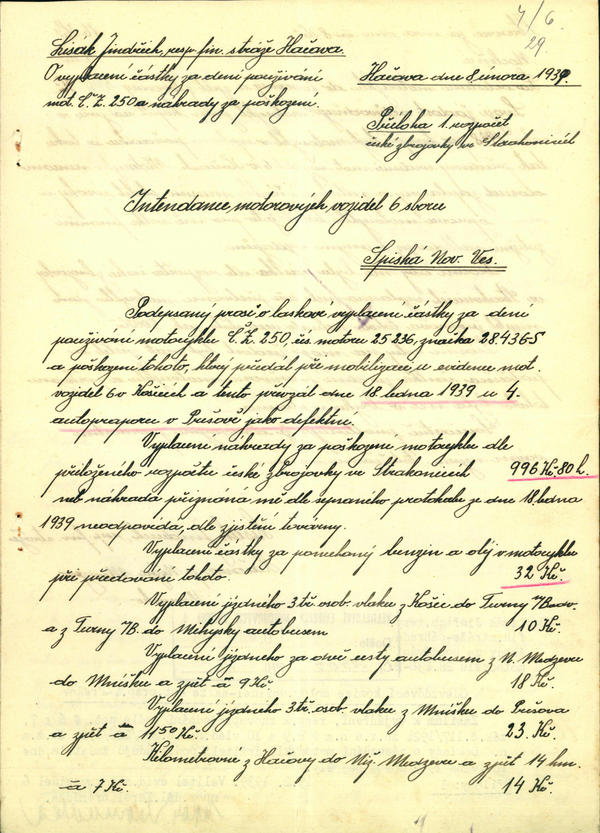 7/6
29
Lisák Jindřich, resp. fin. stráže Hačava.
O vyplacení částky za denní používání
mot. Č.Z. 250 a náhrady za poškození.
Hačava dne 8. února 1939.
Příloha 1. rozpočet
české zbrojovky ve Strakonicích
Intendance, motorových vozidel 6 sboru
Spišská Nov. Ves.
Podepsaný prosí o laskavé vyplacení částky za denní
používání motocyklu Č.Z. 250, čís motoru 25236, značka 28.436-S
a poškození tohoto, který předal při mobilizaci u evidence mot.
vozidel 6 v Košicích a tento převzal dne 18. ledna 1939 u 4-
autopraporu v Prešově jako defektní.
Vyplacení náhrady za poškození motocyklu dle
přiloženého rozpočtu české zbrojovky ve Strakonicích 996 Kč 80 h.
neb náhrada přiznaná mě dle sepsaného protokolu ze dne 18. ledna
1939 neodpovídá, dle zjištění továrny.
Vyplacení částky za ponechaný benzin a olej v motocyklu
při předávání tohoto. 32 Kč.
Vyplacení jízdného 3 tř. osob. vlaku z Košic do Turny n/Bodv.
a z Turny n/B. do Mihysky autobusem 10 Kč.
Vyplacení jízdného za dvě cesty autobusem z N. Medzeva
do Mníšku a zpět à 9 Kč. 18 Kč.
Vyplacení jízdného 3 tř. osob. vlaku z Mníšku do Prešova
a zpět à 11.50 Kč. 23. Kč.
Kilometrovné z Hačavy do Niž. Medzeva a zpět 14 km.
à 7 Kč. 14 Kč.